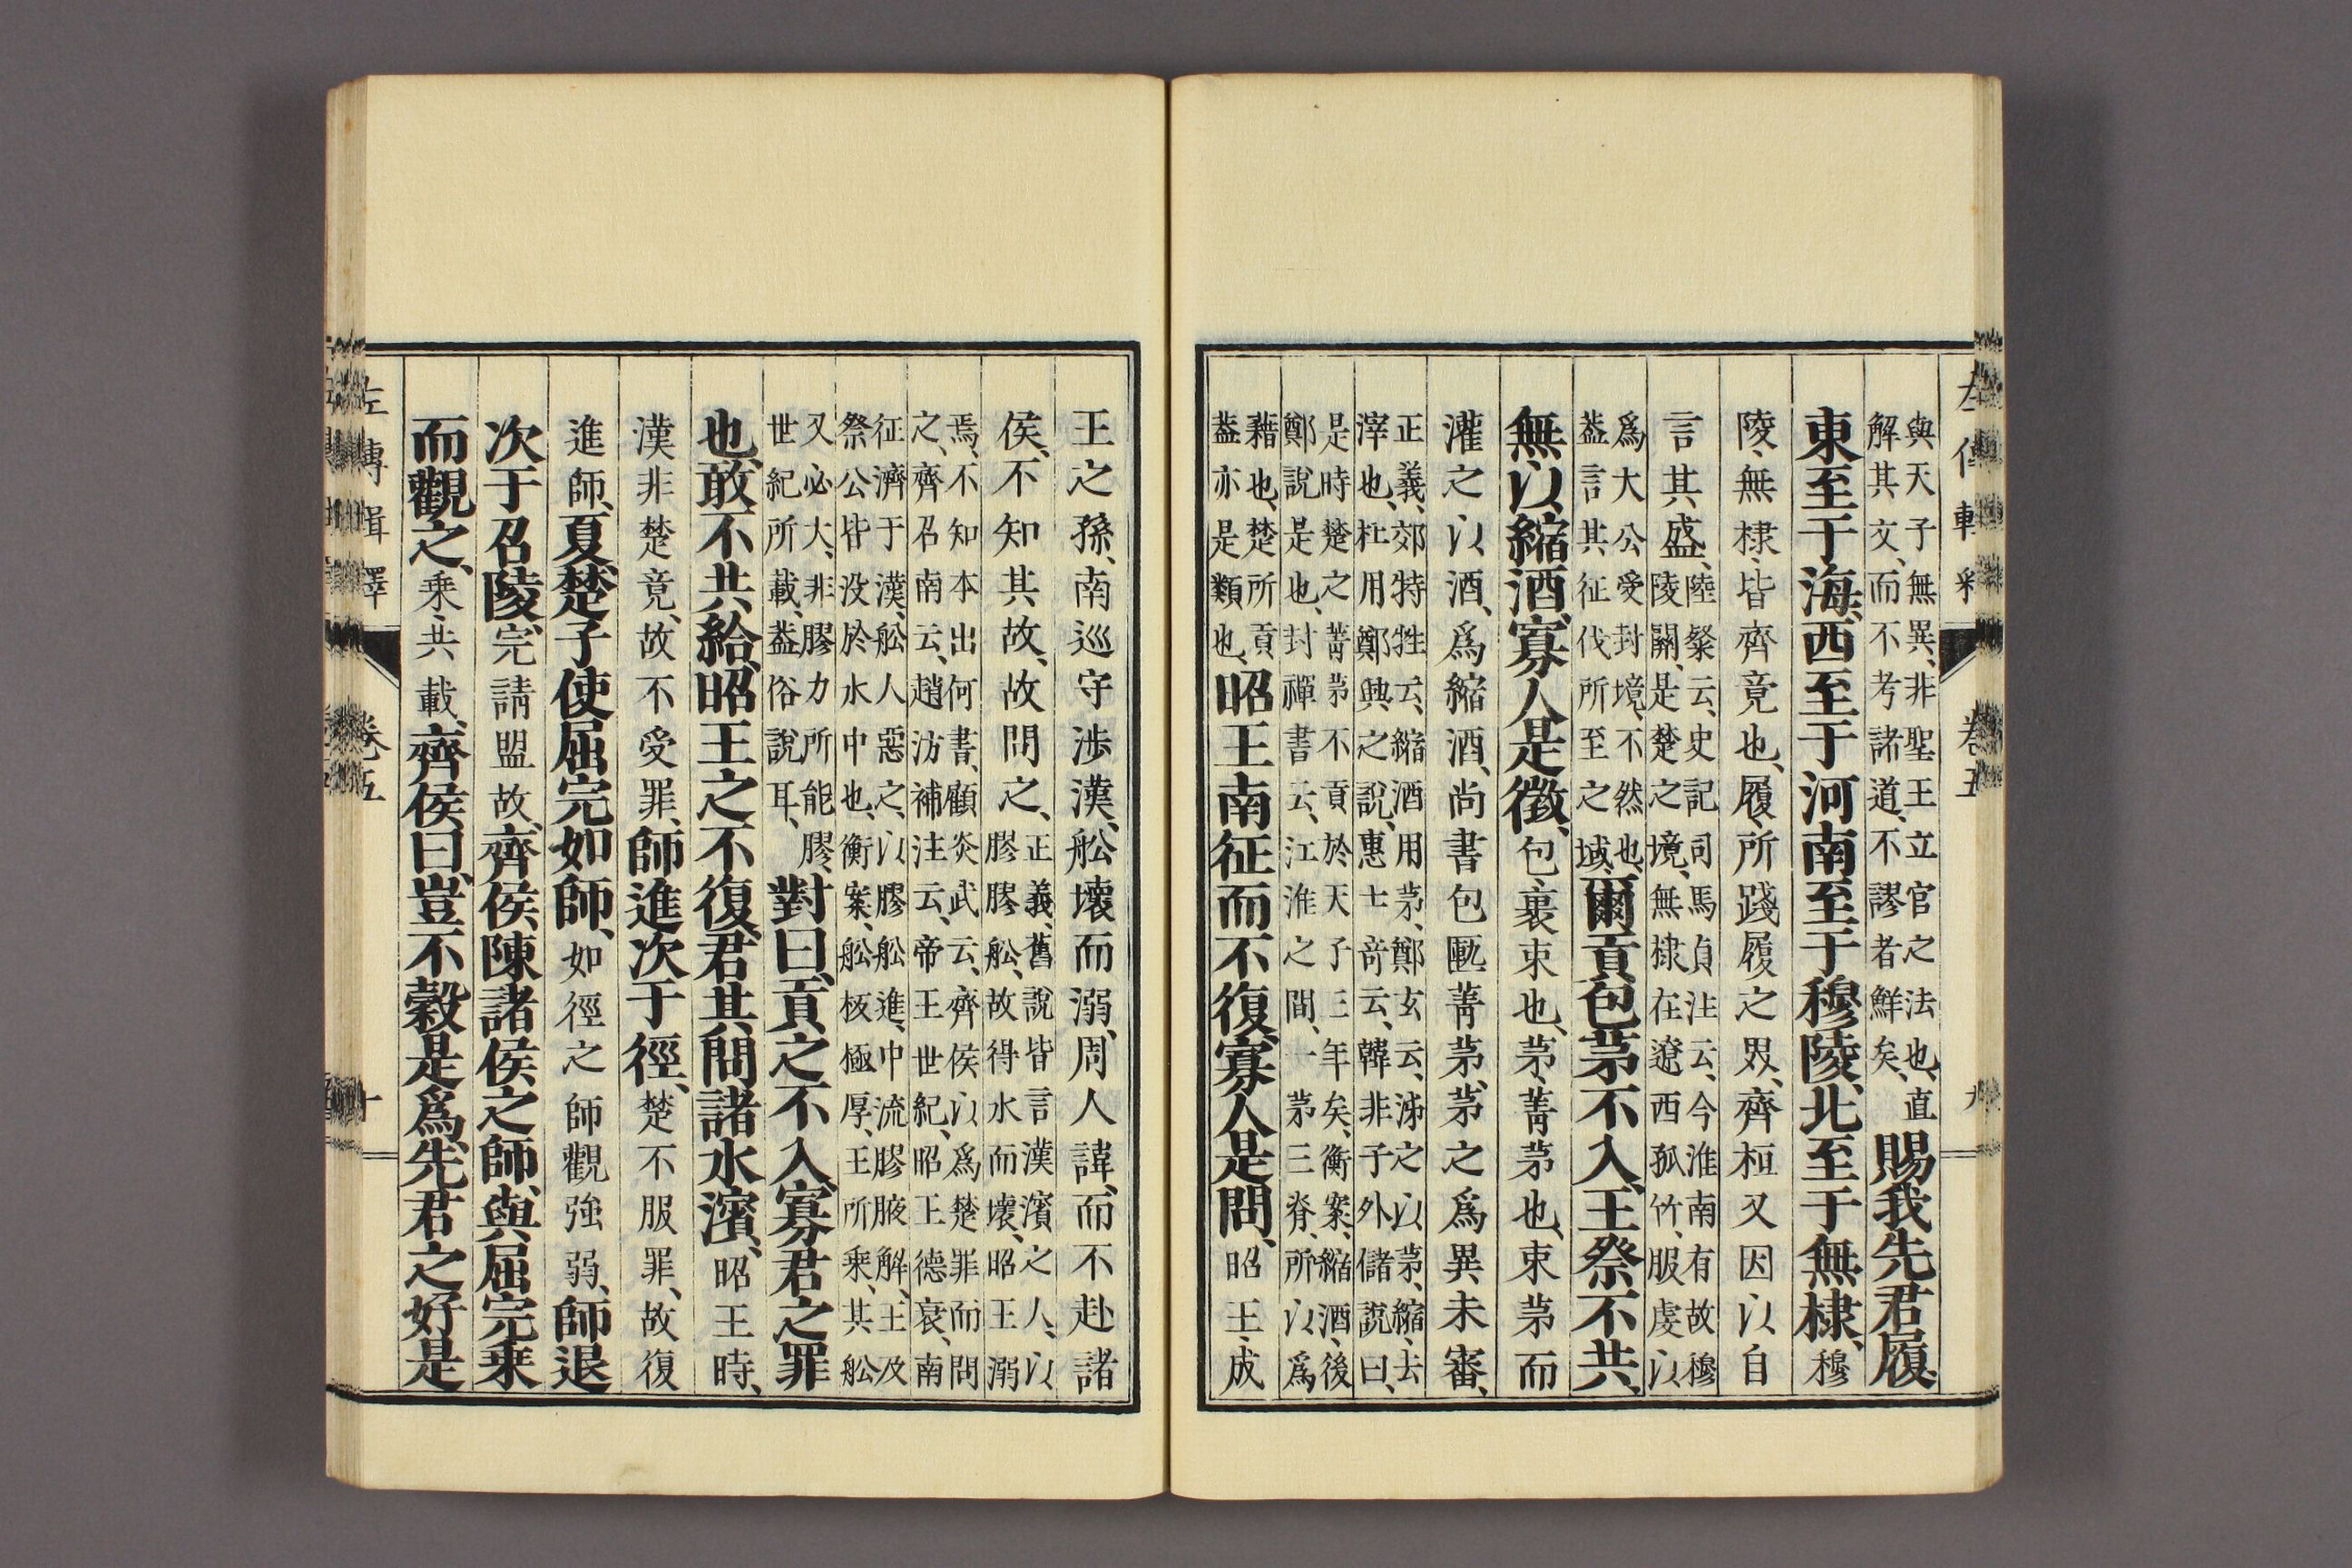 與天子無異、非聖王立官之法也、直
解其文、而不考諸道、不謬者鮮矣、
賜我先君履、
東至于海、西至于河、南至于穆陵、北至于無棣、穆
陵、無棣、皆齊竟也、履、所踐履之界、齊桓又因以自
言其盛、
陸粲云、史記司馬貞注云、今淮南有故穆
陵關、是楚之境、無棣在遼西孤竹、服虔以
爲大公受封境、不然也、
蓋言其征伐所至之域、
爾貢包茅不入、王祭不共、
無以縮酒、寡人是徵、包、裹束也、茅、菁茅也、束茅而
灌之以酒、爲縮酒、尚書包匭菁茅、茅之爲異未審、
正義、郊特牲云、縮酒用茅、鄭玄云、泲之以茅、縮、去
滓也、杜用鄭興之說、惠士奇云、韓非子外儲說曰、
是時楚之菁茅不貢於天子三年矣、衡案、縮酒、後
鄭說是也、封禪書云、江淮之間、一茅三脊、所以爲
藉也、楚所貢
蓋亦是類也、
昭王南征而不復、寡人是問、昭王、成
王之孫、南巡守涉漢、舩壞而溺、周人諱、而不赴諸
侯、不知其故、故問之、
正義、舊說皆言漢濱之人、以
膠膠舩、故得水而壞、昭王溺
焉、不知本出何書、顧炎武云、齊侯以爲楚罪而問
之、齊召南云、趙汸補注云、帝王世紀、昭王德衰、南
征濟于漢、舩人惡之、以膠舩進、中流膠腋解、王及
祭公皆没於水中也、衡案、舩板極厚、王所乘、其舩
又必大、非膠力所能膠、
世紀所載、蓋俗說耳、
對曰、貢之不入、寡君之罪
也、敢不共給、昭王之不復、君其問諸水濱、昭王時、
漢非楚竟、故不受罪、師進次于徑、楚不服罪、故復
進師、夏、楚子使屈完如師、如徑之師觀強弱、師退
次于召陵、完請盟故、齊侯陳諸侯之師、與屈完乘
而觀之、乘、共載、齊侯曰、豈不穀是爲、先君之好是
左傳輯釋 卷五 十